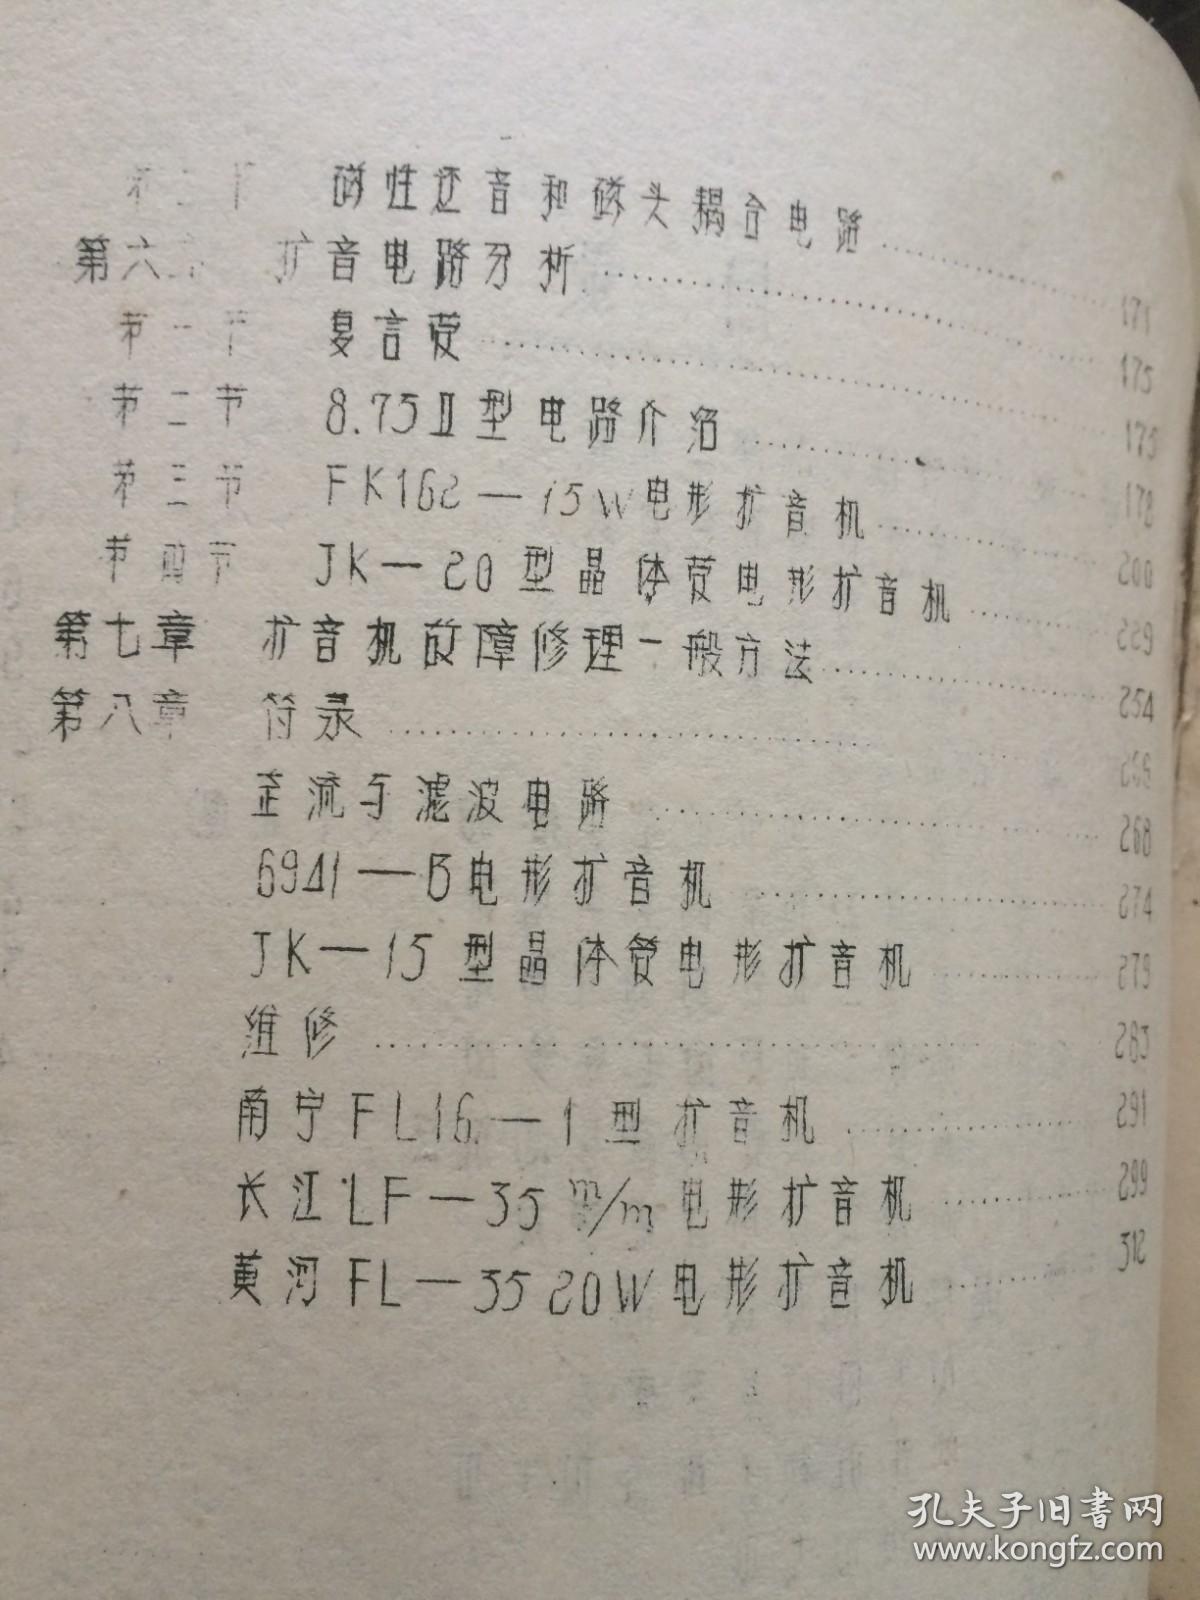 第二节 磁性还音和磁头耦合电路 171
第六章 扩音电路分析 175
节一节 复言茓 175
节二节 8.75Ⅱ型电路介沼 178
节三节 FK162—15W电形扩音机 200
节四节 JK—20型晶体茓电形扩音机 229
第七章 扩音机故障修理一般方法 254
第八章 符录
正流与滤波电路 268
6941—B电形扩音机 274
JK—15型晶体管电形扩音机 279
维修 283
南宁FL16—1型扩音机 291
长江LF—35 m/m电形扩音机 299
黄河FL—35 20W电形扩音机 312
孔夫子旧书网
www.kongfz.com